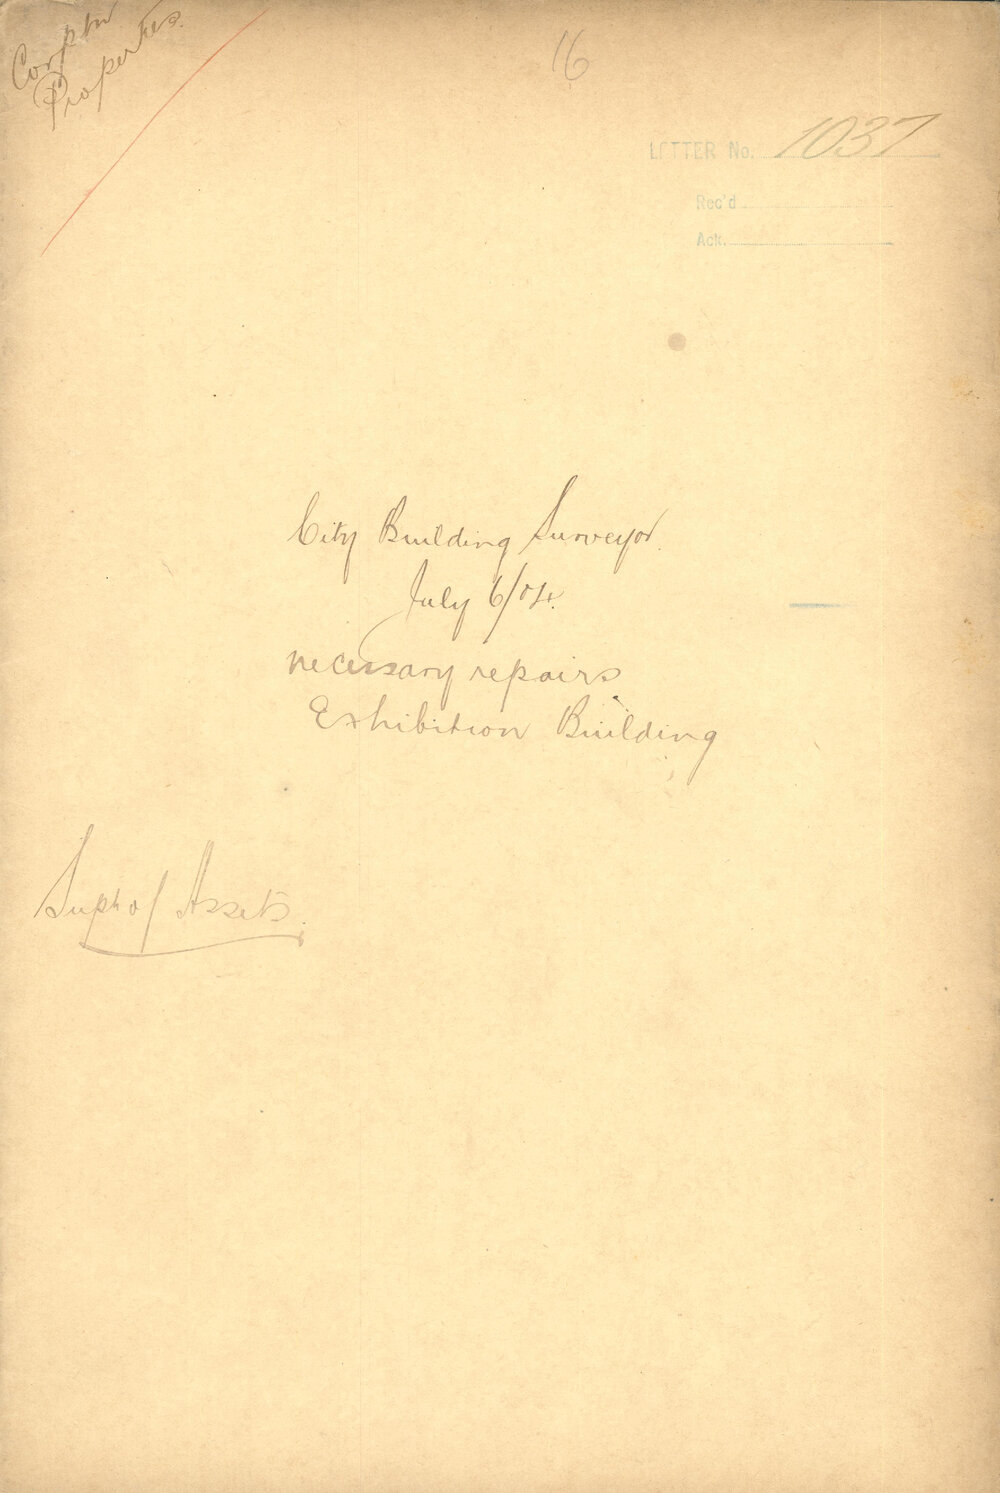 Corptn
Properties.
16
LETTER No. 1037
Rec'd
Ack.
City Building Surveyor.
July 6/04.
necessary repairs
Exhibition Building
Supt of Assets.